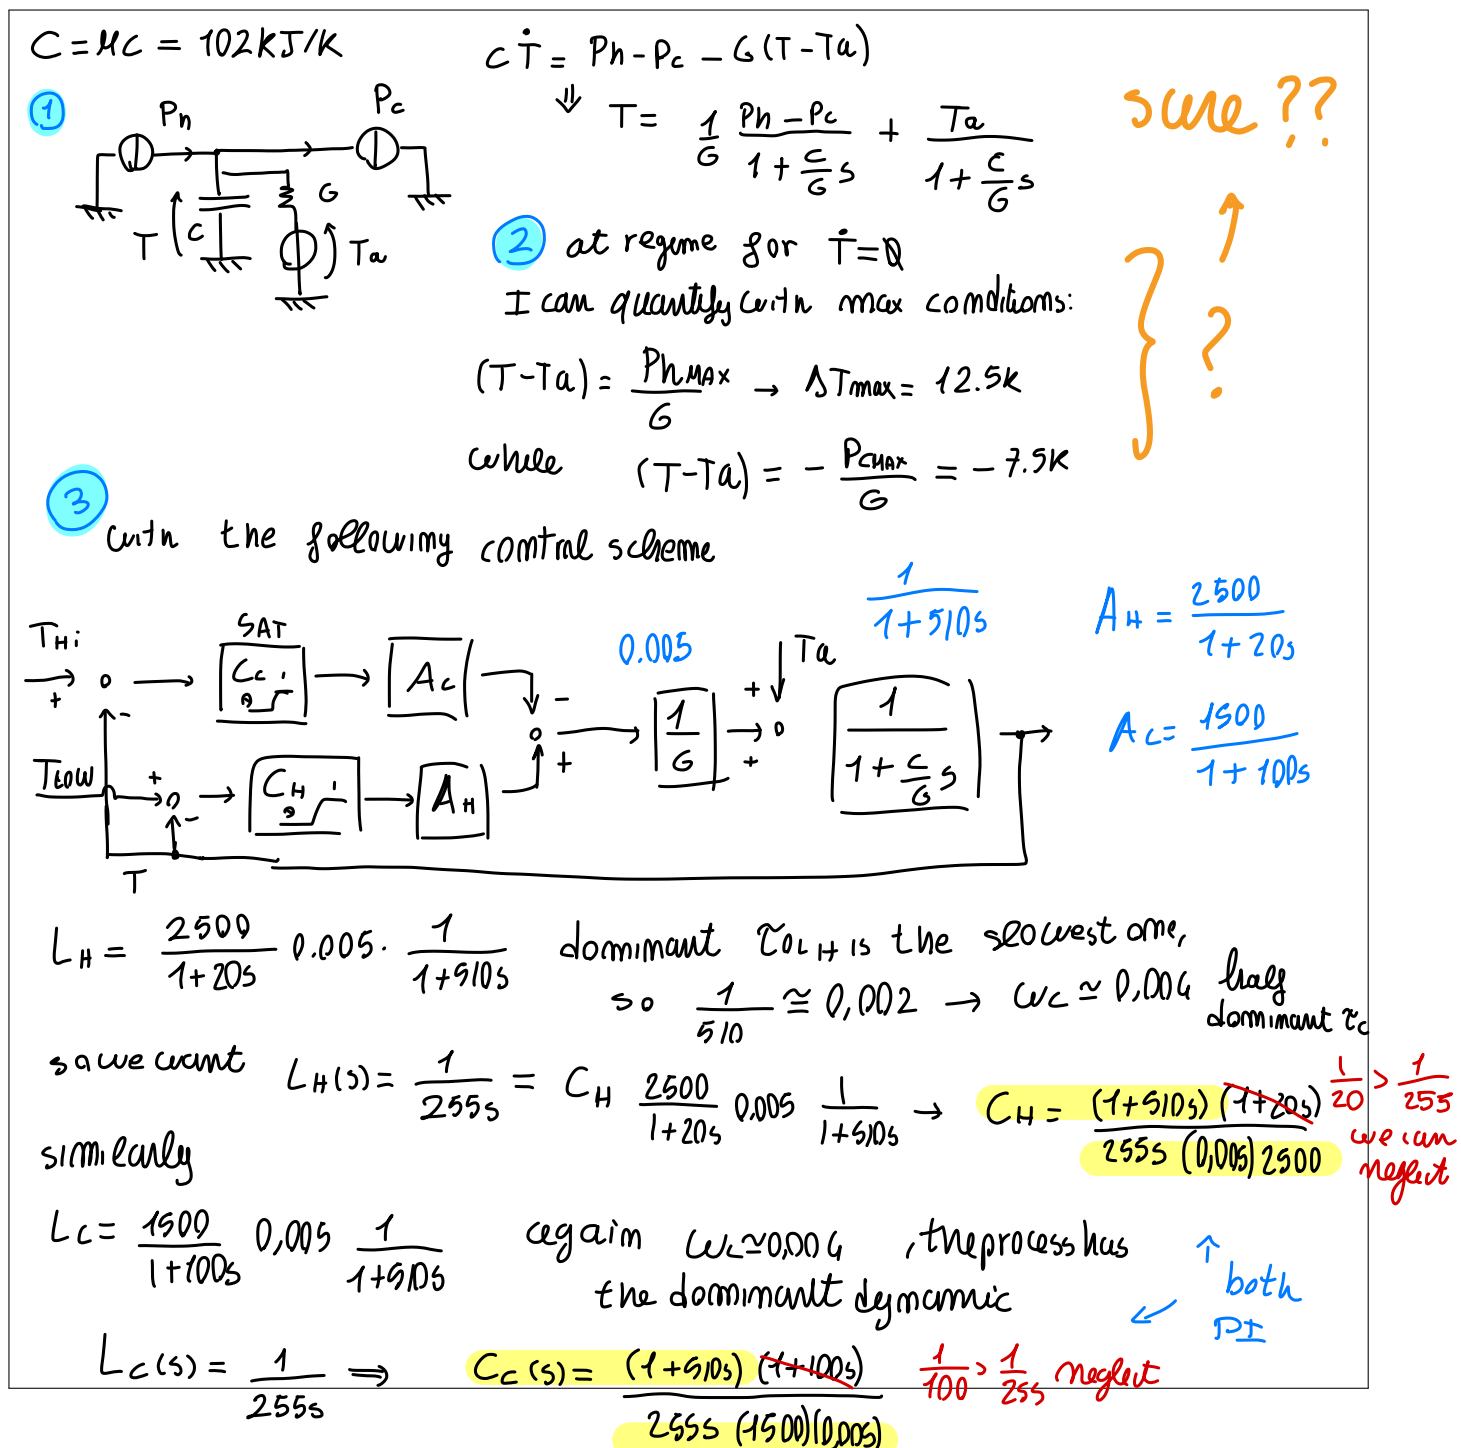 C = MC = 102KJ/K
CṪ = Ph - Pc - G(T-Ta)
⇓ T = 1/G (Ph - Pc)/(1 + C/G s) + Ta/(1 + C/G s)
sure ??
1
Ph
Pc
G
T
C
Ta
2 at regime for Ṫ = 0
I can quantify with max conditions:
(T-Ta) = PhMAX/G → ΔTmax = 12.5K
while (T-Ta) = - PcMAX/G = - 7.5K
?
3
with the following control scheme
1/(1+510s)
AH = 2500/(1+20s)
THi
SAT
0.005
Ta
+
-
Cc
Ac
-
+
1/G
+
+
1/(1 + C/G s)
Ac = 1500/(1+100s)
TLOW
+
-
CH
AH
T
LH = 2500/(1+20s) 0.005 · 1/(1+510s) dominant τOLH is the slowest one,
so 1/510 ≅ 0,002 → ωc ≃ 0,004 half dominant τc
so we want LH(s) = 1/255s = CH 2500/(1+20s) 0,005 1/(1+510s) → CH = (1+510s)(1+20s)/(255s (0,005) 2500)
1/20 > 1/255 we can neglect
similarly
Lc = 1500/(1+100s) 0,005 1/(1+510s) again ωc≃0,004 , the process has
the dominant dynamic
↑ both PI
Lc(s) = 1/255s ⇒ Cc(s) = (1+510s)(1+100s)/(255s (1500)(0,005)) 1/100 > 1/255 neglect